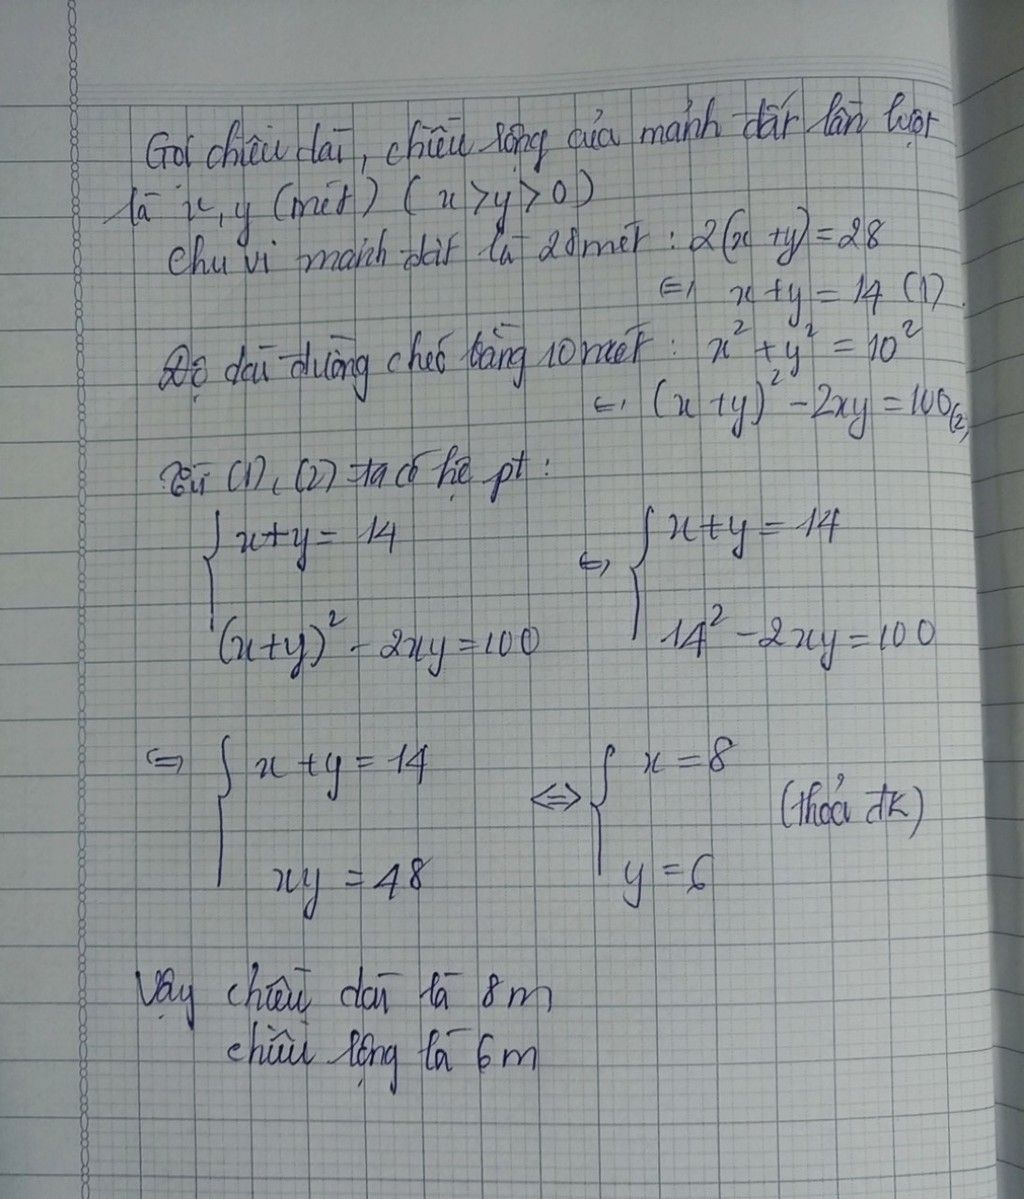 Gọi chiều dài, chiều rộng của mảnh đất lần lượt
là x, y (mét) (x > y > 0)
Chu vi mảnh đất là 28 mét : 2(x + y) = 28
⇔ x + y = 14 (1)
Độ dài đường chéo bằng 10 mét : x² + y² = 10²
⇔ (x + y)² - 2xy = 100 (2)
Từ (1), (2) ta có hệ pt :
x + y = 14 ⇔ x + y = 14
(x + y)² - 2xy = 100 14² - 2xy = 100
⇔ x + y = 14 ⇔ x = 8 (thỏa đk)
xy = 48 y = 6
Vậy chiều dài là 8 m
chiều rộng là 6 m